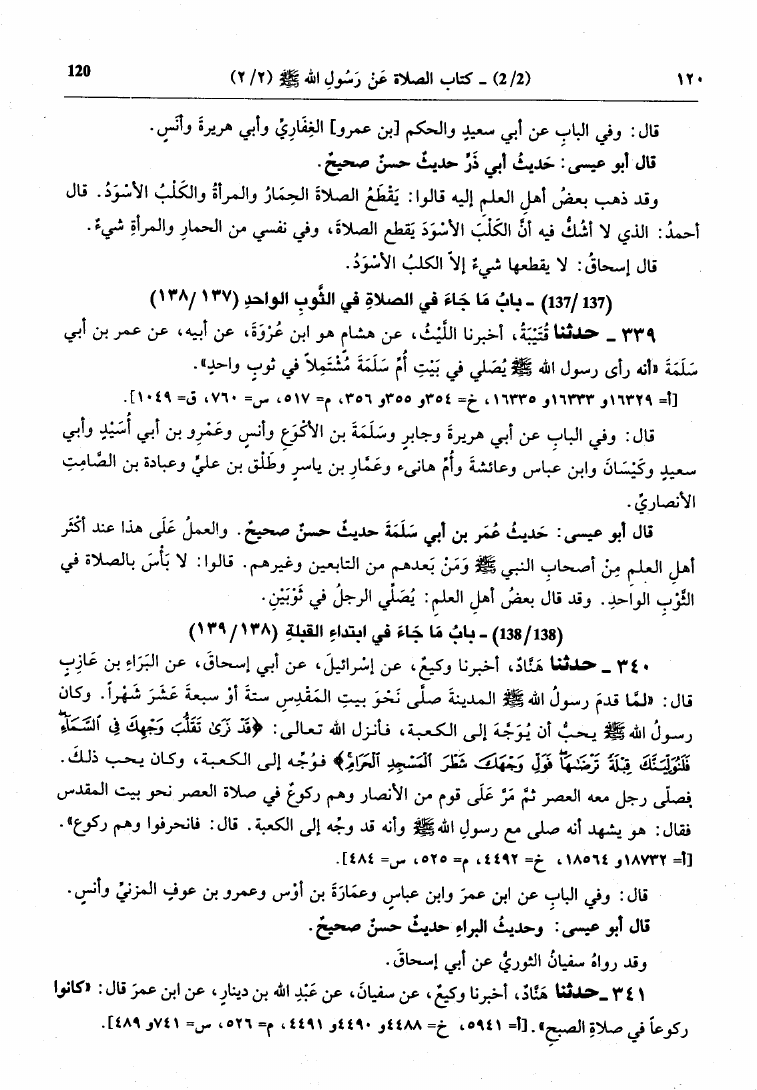 ١٢٠ (2/2) ـ كتاب الصلاة عَنْ رَسُولِ الله ﷺ (٢/٢) 120
قال: وفي البابِ عن أبي سعيدٍ والحكمِ [بن عمرو] الغِفَارِيِّ وأبي هريرةَ وأَنَسٍ.
قال أبو عيسى: حَديثُ أبي ذَرٍّ حديثٌ حسنٌ صحيحٌ.
وقد ذهب بعضُ أهلِ العلمِ إليه قالوا: يَقْطَعُ الصلاةَ الحِمَارُ والمرأةُ والكَلْبُ الأسْوَدُ. قال
أحمدُ: الذي لا أشكُّ فيه أنَّ الكَلْبَ الأسْوَدَ يَقطع الصلاةَ، وفي نفسي من الحمارِ والمرأةِ شيءٌ.
قال إسحاقُ: لا يقطعها شيءٌ إلاَّ الكلبُ الأسْوَدُ.
(137/137) - بابُ مَا جَاءَ في الصلاةِ في الثَّوبِ الواحدِ (١٣٧/ ١٣٨)
٣٣٩ ـ حدثنا قُتَيْبَةُ، أخبرنا اللَّيْثُ، عن هشامٍ هو ابن عُرْوَةَ، عن أبيه، عن عمر بن أبي
سَلَمَةَ «أنه رأى رسول الله ﷺ يُصَلي في بَيْتِ أُمِّ سَلَمَةَ مُشْتَمِلاً في ثوبٍ واحدٍ».
[أ= ١٦٣٢٩و ١٦٣٣٣و ١٦٣٣٥، خ= ٣٥٤و ٣٥٥و ٣٥٦، م= ٥١٧، س= ٧٦٠، ق= ١٠٤٩].
قال: وفي البابِ عن أبي هريرةَ وجابرٍ وسَلَمَةَ بن الأكْوَعِ وأنسٍ وعَمْرِو بن أبي أُسَيْدٍ وأبي
سعيدٍ وكَيْسَانَ وابن عباسٍ وعائشةَ وأُمِّ هانىء وعَمَّارِ بن ياسرٍ وطَلْقِ بن عليٍّ وعبادة بن الصَّامتِ
الأنصاريِّ.
قال أبو عيسى: حَديثُ عُمَر بن أبي سَلَمَةَ حديثٌ حسنٌ صحيحٌ. والعملُ عَلَى هذا عند أكْثَر
أهلِ العلمِ مِنْ أصحابِ النبي ﷺ وَمَنْ بَعدهم من التابعين وغيرهم. قالوا: لا بَأسَ بالصلاة في
الثَّوْبِ الواحدِ. وقد قال بعضُ أهلِ العلمِ: يُصَلِّي الرجلُ في ثَوْبَيْنِ.
(138/138) - بابُ مَا جَاءَ في ابتداءِ القبلةِ (١٣٨/ ١٣٩)
٣٤٠ ـ حدثنا هَنَّادٌ، أخبرنا وكيعٌ، عن إسْرائيلَ، عن أبي إسحاقَ، عن البَرَاءِ بن عَازبٍ
قال: «لمَّا قدمَ رسولُ الله ﷺ المدينةَ صلَّى نَحْوَ بيتِ المَقْدِسِ ستةَ أوْ سبعةَ عَشَرَ شَهْراً. وكان
رسولُ الله ﷺ يحبُّ أن يُوَجَّهَ إلى الكعبة، فأنزل الله تعالى: ﴿قَدْ نَرَىٰ تَقَلُّبَ وَجْهِكَ فِي ٱلسَّمَآءِ
فَلَنُوَلِّيَنَّكَ قِبْلَةً تَرْضَىٰهَا فَوَلِّ وَجْهَكَ شَطْرَ ٱلْمَسْجِدِ ٱلْحَرَامِ﴾ فوُجِّه إلى الكعبة، وكان يحب ذلكَ.
فصلَّى رجل معه العصر ثمَّ مَرَّ عَلَى قوم من الأنصار وهم ركوعٌ في صلاة العصر نحو بيت المقدس
فقال: هو يشهد أنه صلى مع رسولِ الله ﷺ وأنه قد وجِّه إلى الكعبة. قال: فانحرفوا وهم ركوع».
[أ= ١٨٧٣٢و ١٨٥٦٤، خ= ٤٤٩٢، م= ٥٢٥، س= ٤٨٤].
قال: وفي البابِ عن ابن عمرَ وابن عباسٍ وعمَارَةَ بن أوْس وعمرو بن عوفٍ المزنيِّ وأنسٍ.
قال أبو عيسى: وحديثُ البراءِ حديثٌ حسنٌ صحيحٌ.
وقد رواهُ سفيانُ الثوريُّ عن أبي إسحاقَ.
٣٤١ ـ حدثنا هَنَّادٌ، أخبرنا وكيعٌ، عن سفيانَ، عن عَبْدِ الله بن دينارٍ، عن ابن عمرَ قال: «كانوا
ركوعاً في صلاةِ الصبحِ». [أ= ٥٩٤١، خ= ٤٤٨٨و ٤٤٩٠و ٤٤٩١، م= ٥٢٦، س= ٧٤١و ٤٨٩].